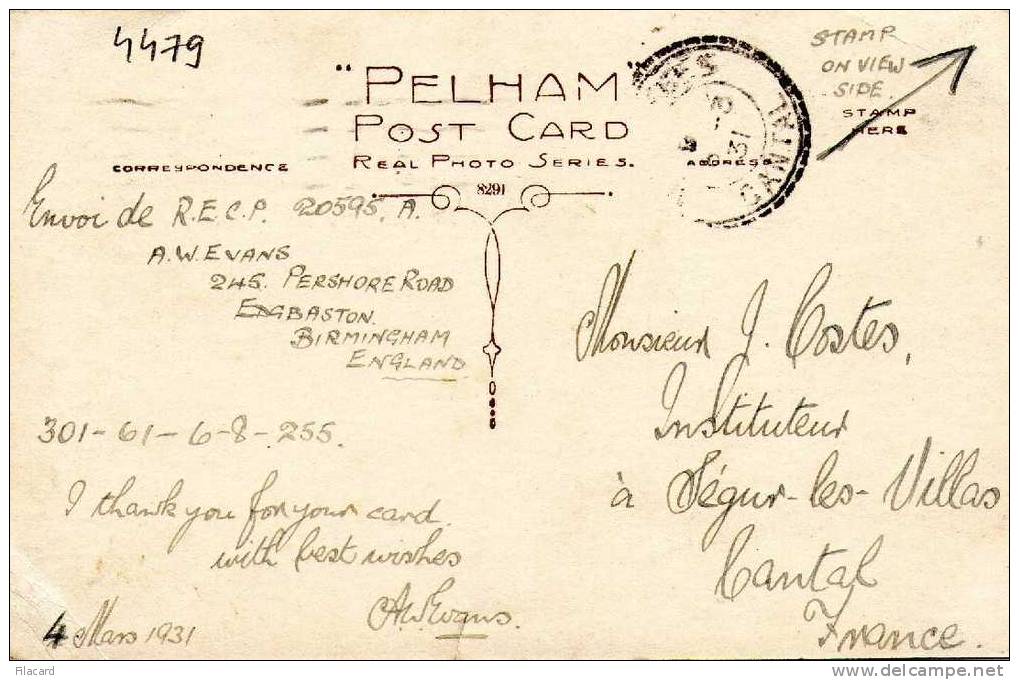 4479
STAMP
ON VIEW
SIDE.
STAMP
HERE
"PELHAM"
POST CARD
REAL PHOTO SERIES.
CORRESPONDENCE
ADDRESS
8291
CANTAL
31
Envoi de R.E.C.P. 20595. A.
A.W. EVANS
245. PERSHORE ROAD
EDGBASTON.
BIRMINGHAM
ENGLAND
301-61-6-8-255.
I thank you for your card.
with best wishes
A.W. Evans.
4 Mars 1931
Monsieur J. Costes,
Instituteur
à Ségur-les-Villas
Cantal
France.
Filacard
delcampe.net